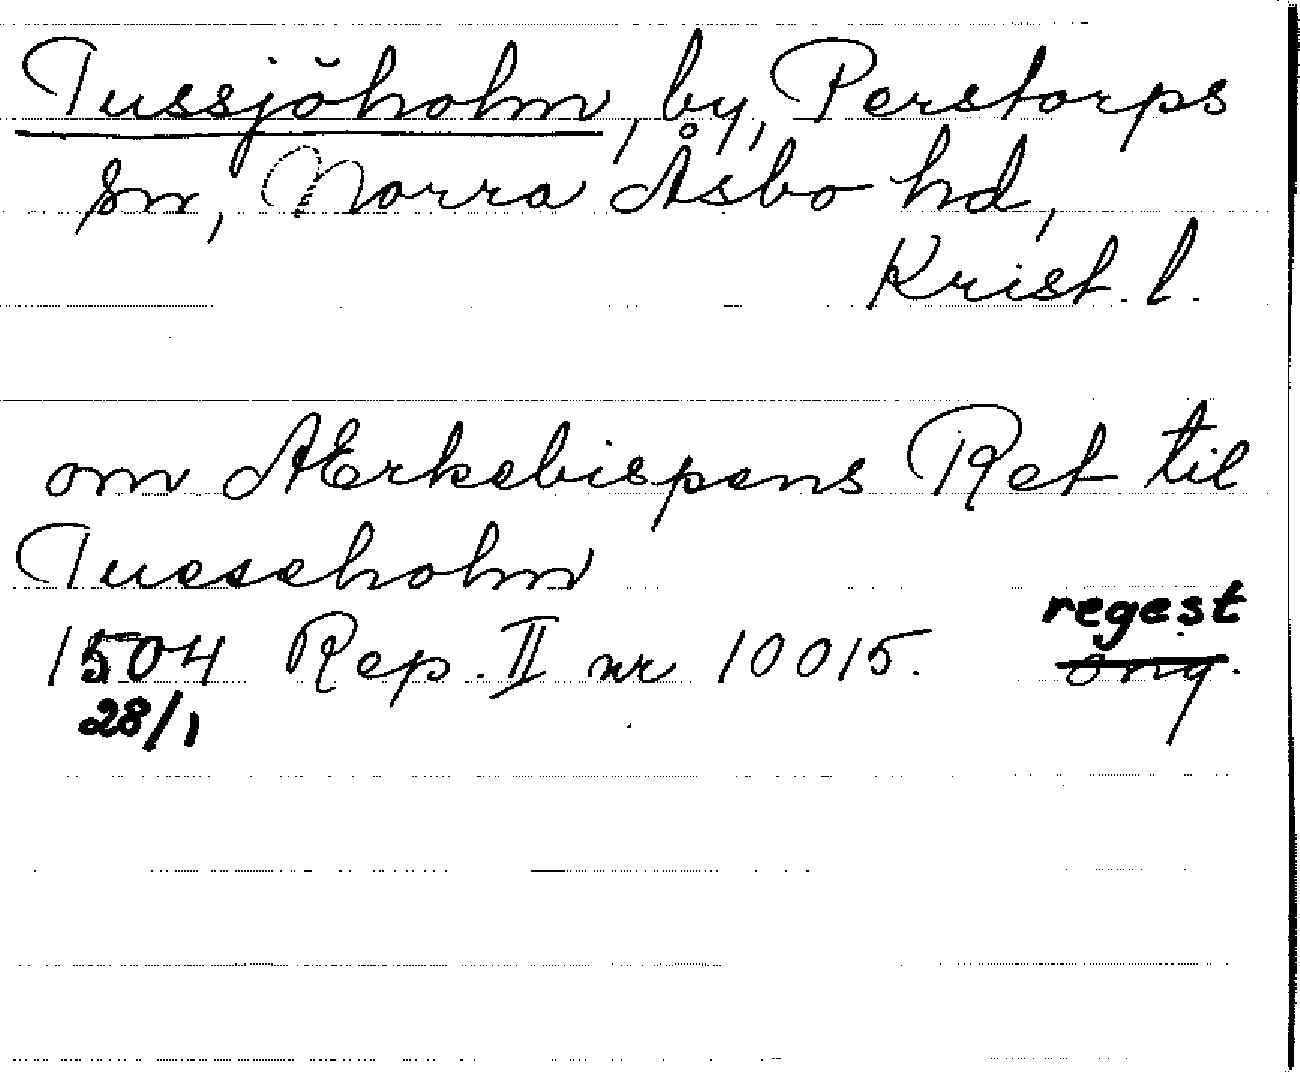 Tussjöholm, by, Perstorps
sn, Norra Åsbo hd,
Krist. l.
om Ærkebispens Ret til
Tueseholm
regest
1504 Rep. II nr 10015. orig.
28/1